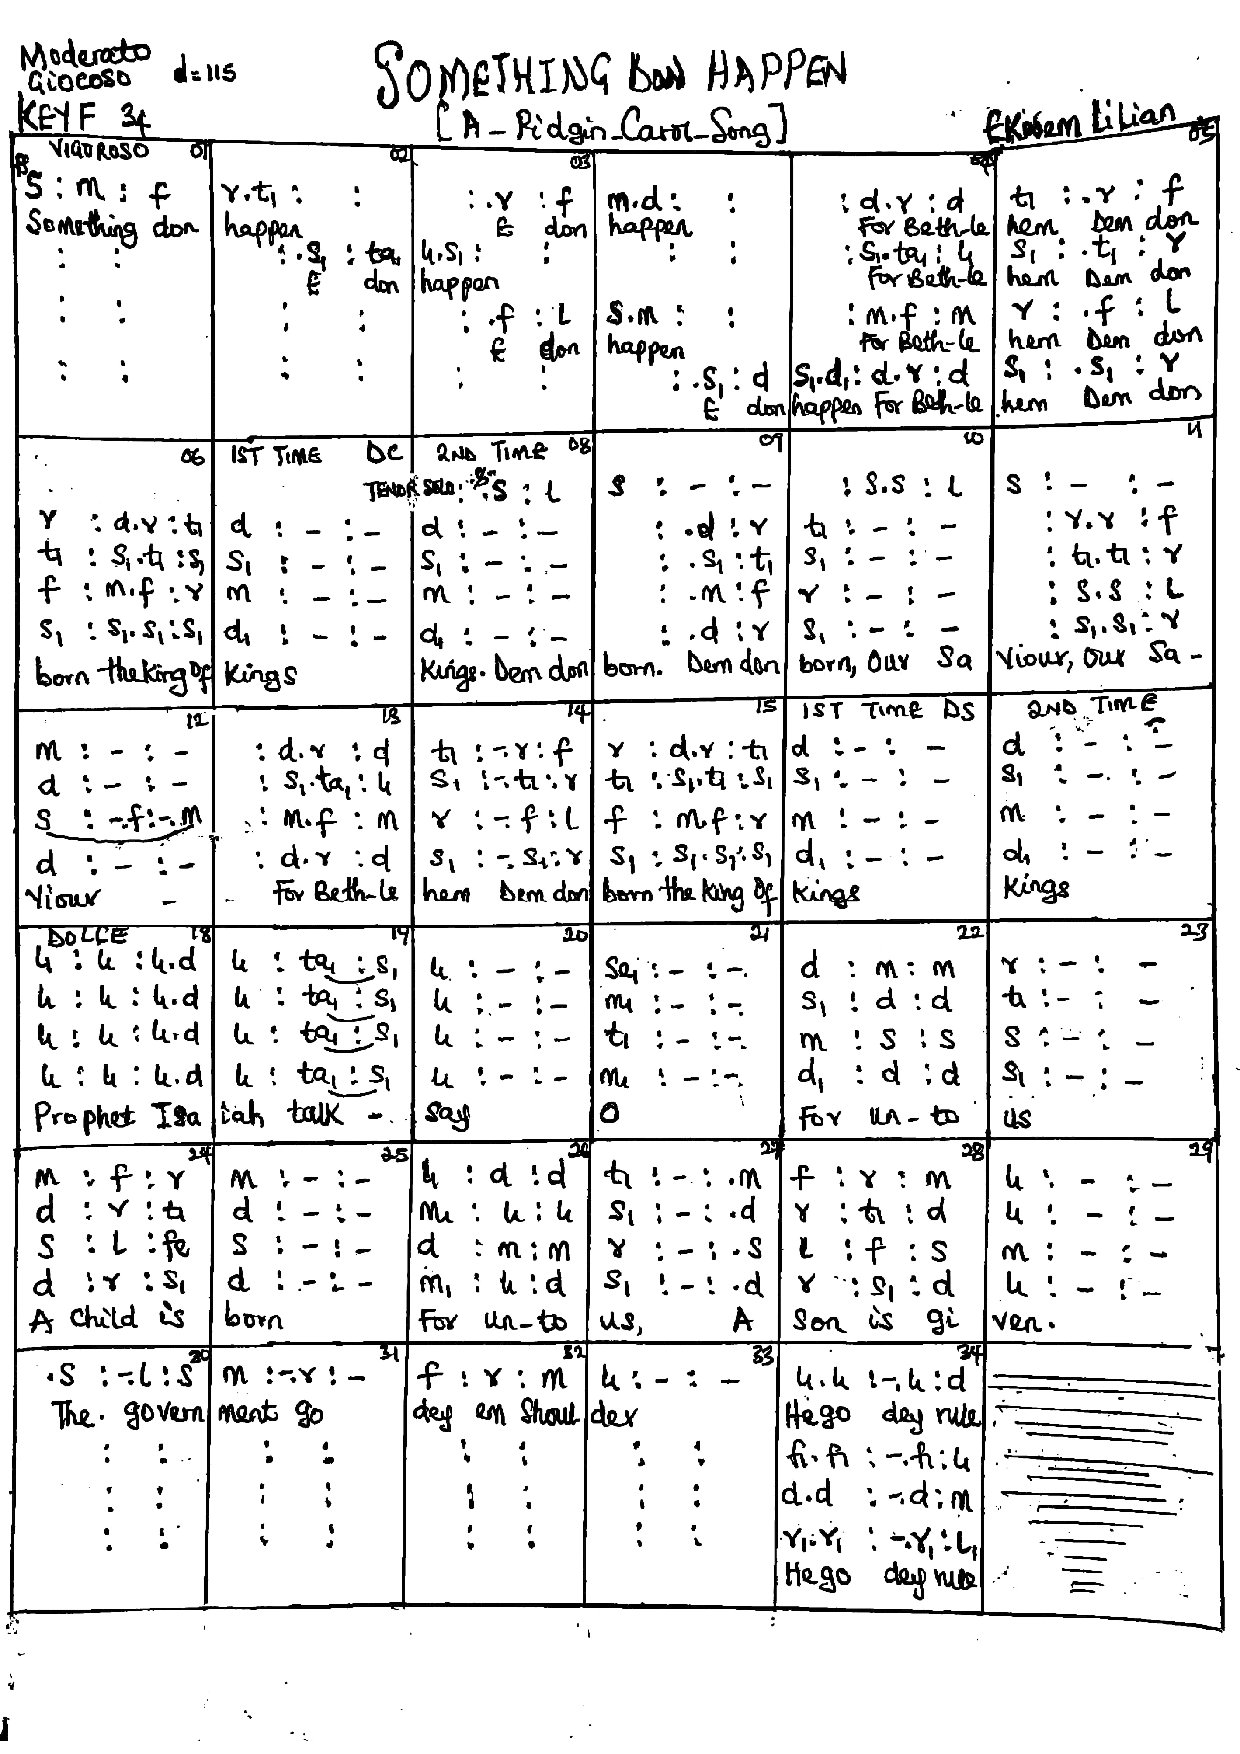 Moderato
Giocoso d=115
SOMETHING DON HAPPEN
KEY F 34
[A-Pidgin-Carol-Song]
Ekisem Lilian
VIGOROSO 01 02 03 04 05
S : m : f r.t₁ : : : .r : f m.d : : : d.r : d t₁ : .r : f
Something don happen E don happen For Beth-le hem Dem don
: : : .s₁ : ta₁ l₁.s₁ : : : : : s₁.ta₁ : l₁ s₁ : .t₁ : r
E don happen For Beth-le hem Dem don
: : : : : .f : l s.m : : : m.f : m r : .f : l
E don happen For Beth-le hem Dem don
: : : : : : : .s₁ : d s₁.d₁ : d.r : d s₁ : .s₁ : r
E don happen For Beth-le hem Dem don
06 1ST TIME DC 2ND TIME 08 09 10 11
TENOR SOLO : .s : l s : - : - : s.s : l s : - : -
r : d.r : t₁ d : - : - d : - : - : .d : r t₁ : - : - : r.r : f
t₁ : s₁.t₁ : s₁ s₁ : - : - s₁ : - : - : .s₁ : t₁ s₁ : - : - : t₁.t₁ : r
f : m.f : r m : - : - m : - : - : .m : f r : - : - : s.s : l
s₁ : s₁.s₁ : s₁ d₁ : - : - d₁ : - : - : .d : r s₁ : - : - : s₁.s₁ : r
born the king of Kings Kings. Dem don born. Dem don born, Our Sa Viour, Our Sa-
12 13 14 15 1ST TIME DS 2ND TIME
m : - : - : d.r : d t₁ : -.r : f r : d.r : t₁ d : - : - d : - : -
d : - : - : s₁.ta₁ : l₁ s₁ : -.t₁ : r t₁ : s₁.t₁ : s₁ s₁ : - : - s₁ : - : -
s : -.f : -.m : m.f : m r : -.f : l f : m.f : r m : - : - m : - : -
d : - : - : d.r : d s₁ : -.s₁ : r s₁ : s₁.s₁ : s₁ d₁ : - : - d₁ : - : -
Viour - For Beth-le hem Dem don born the king of Kings Kings
DOLCE 18 19 20 21 22 23
l₁ : l₁ : l₁.d l₁ : ta₁ : s₁ l₁ : - : - se₁ : - : -. d : m : m r : - : -
l₁ : l₁ : l₁.d l₁ : ta₁ : s₁ l₁ : - : - m₁ : - : -. s₁ : d : d t₁ : - : -
l₁ : l₁ : l₁.d l₁ : ta₁ : s₁ l₁ : - : - t₁ : - : -. m : s : s s : - : -
l₁ : l₁ : l₁.d l₁ : ta₁ : s₁ l₁ : - : - m₁ : - : -. d₁ : d : d s₁ : - : -
Prophet Isa iah talk - say O For un-to us
24 25 26 27 28 29
m : f : r m : - : - l₁ : d : d t₁ : - : .m f : r : m l₁ : - : -
d : r : t₁ d : - : - m₁ : l₁ : l₁ s₁ : - : .d r : t₁ : d l₁ : - : -
s : l : fe s : - : - d : m : m r : - : .s l : f : s m : - : -
d : r : s₁ d : - : - m₁ : l₁ : d s₁ : - : .d r : s₁ : d l₁ : - : -
A child is born For un-to us, A Son is gi ven.
30 31 32 33 34
.s : -.l : s m : -.r : - f : r : m l₁ : - : - l₁.l₁ : -.l₁ : d
The govern ment go dey em Shoul der He go dey rule
: : : : : : : : fi.fi : -.fi : l₁
: : : : : : : : d.d : -.d : m
: : : : : : : : r₁.r₁ : -.r₁ : l₁
He go dey rule